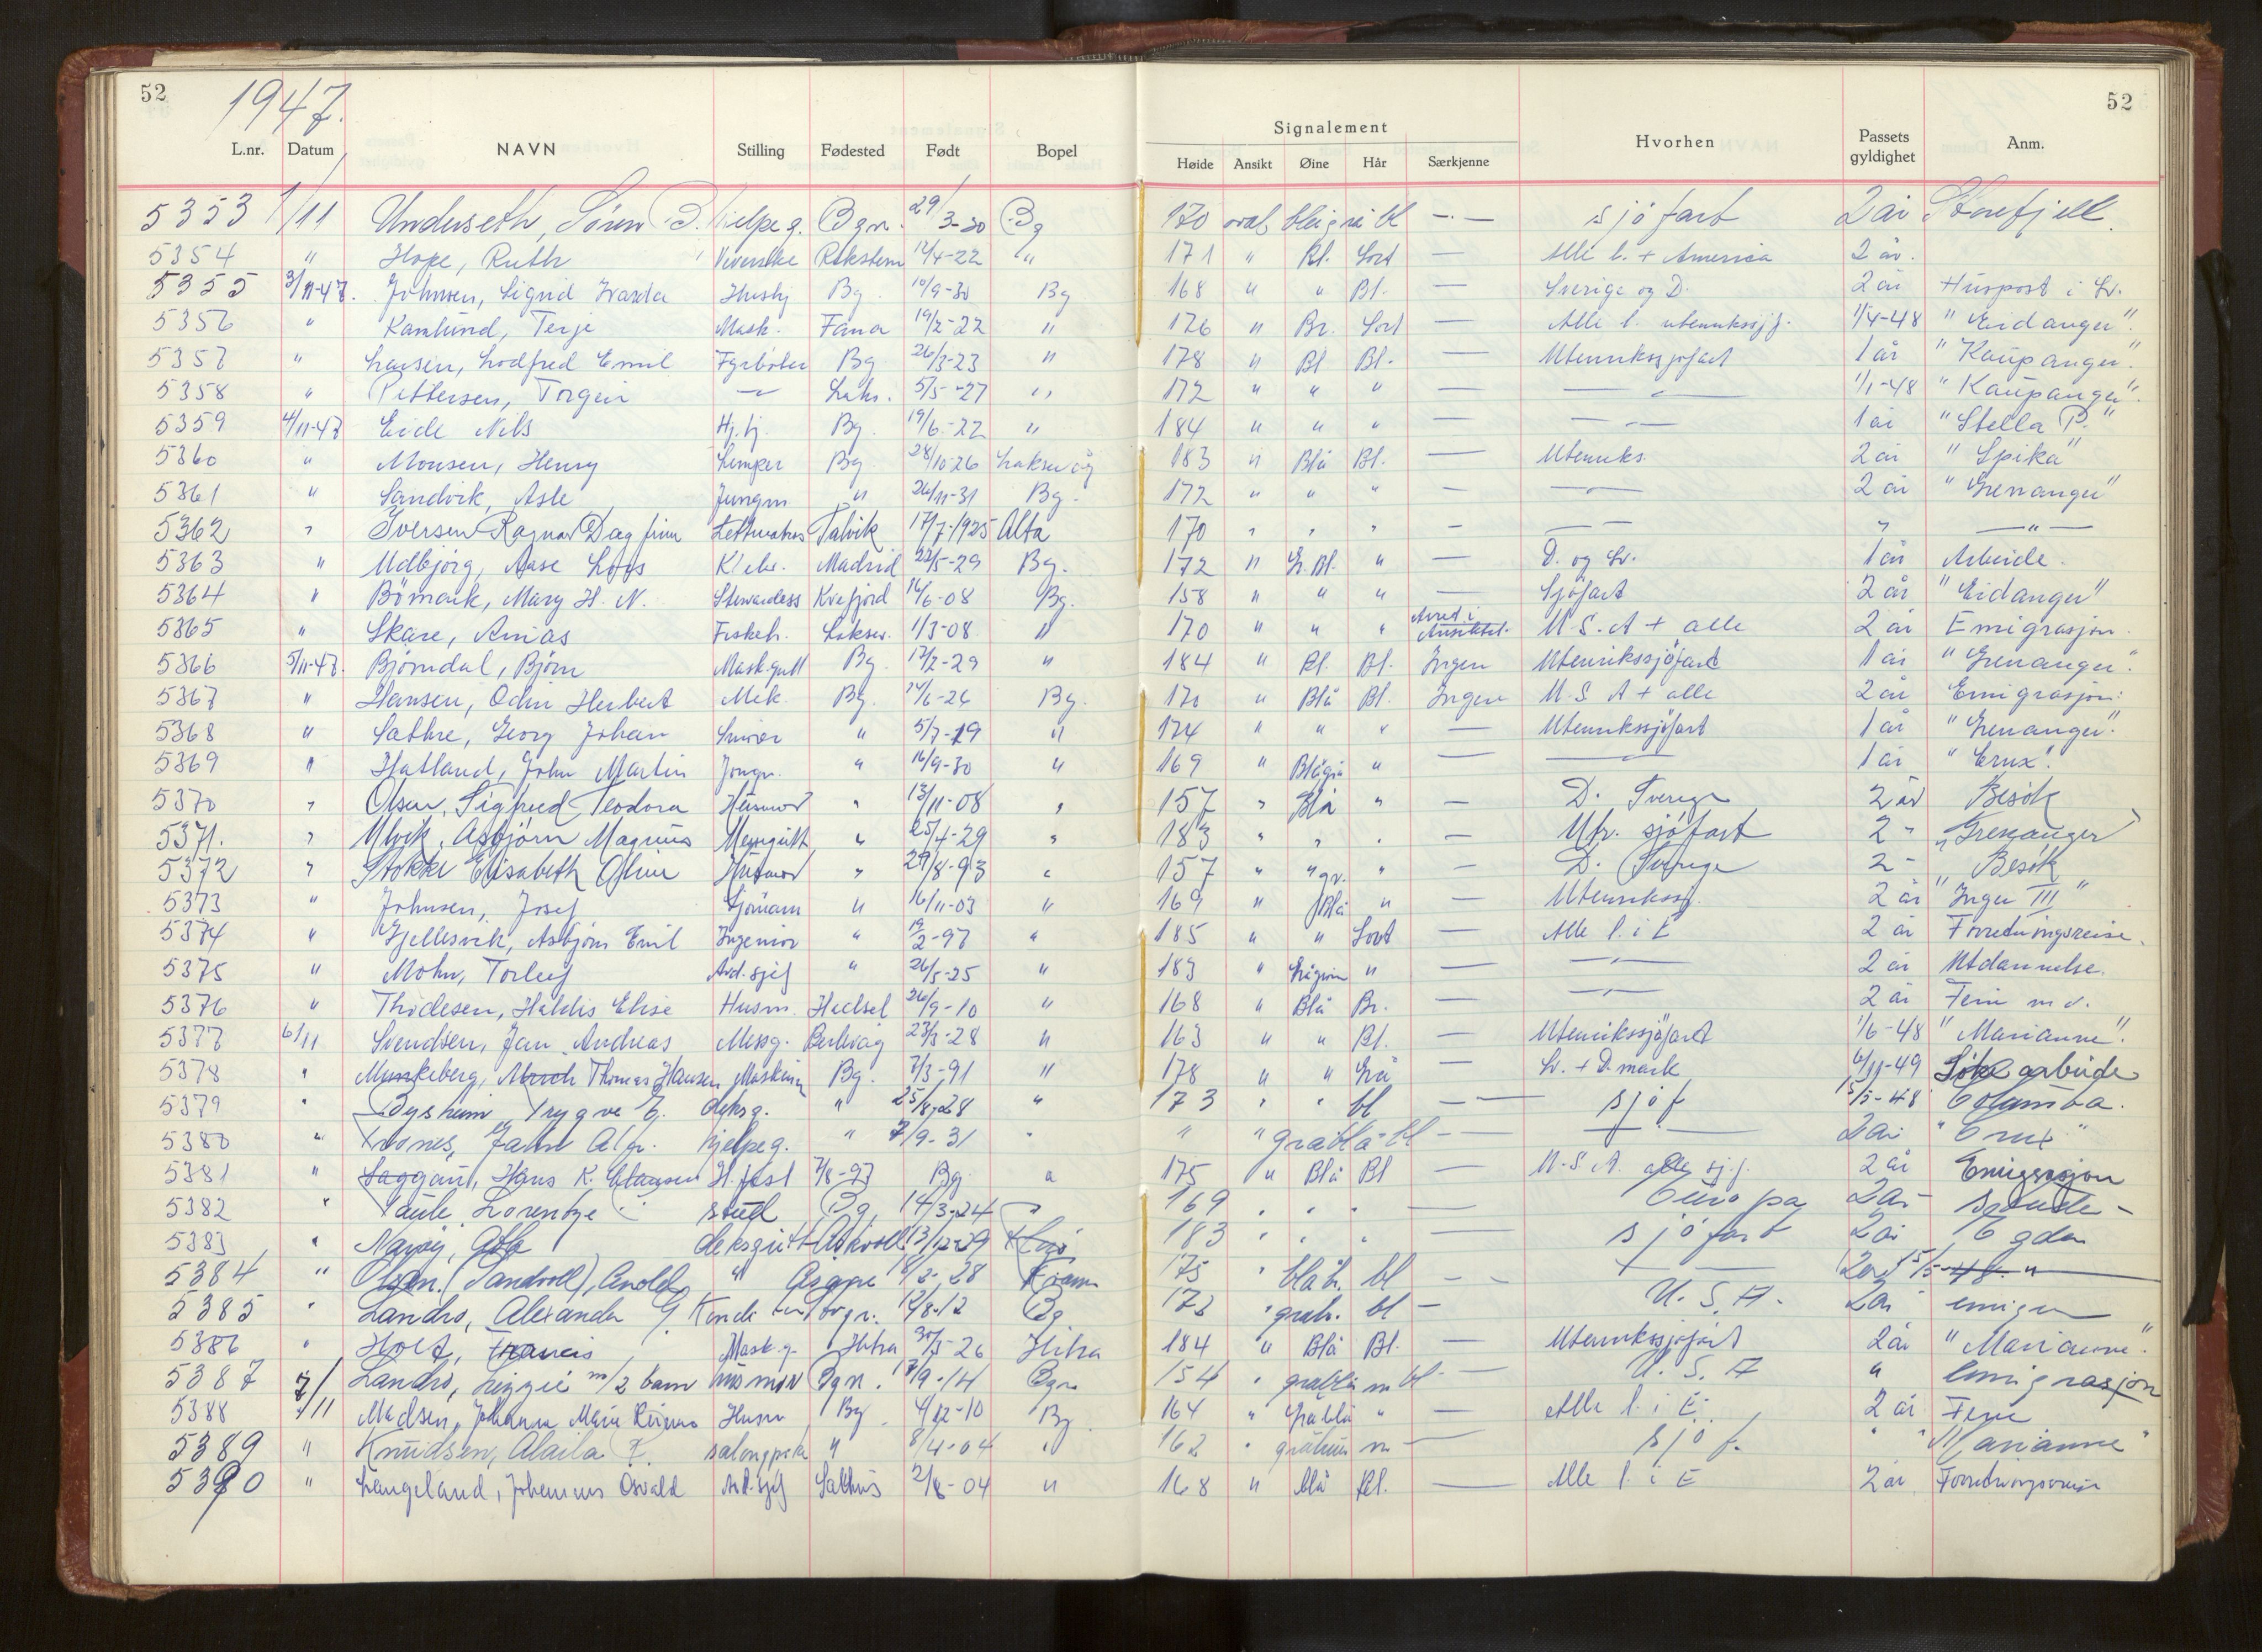 52 1947. 52
L.nr. Datum NAVN Stilling Fødested Født Bopel Signalement Høide Ansikt Øine Hår Særkjenne Hvorhen Passets gyldighet Anm.
5353 1/11 Underseth, Sören B. hjelpeg. Bgn. 29/3-30 Bg 170 oval blågrå bl -·- sjöfart 2 år Storefjell.
5354 " Hope, Ruth Rekstern 12/4-22 " 171 " Bl. Sort — Alle l. + America 2 år.
5355 3/11-47. Johnsen, Sigrid Hushj Bg. 10/9-30 Bg 168 " " Bl. — Sverige og D. 2 år Huspost i Sv.
5356 " Kamlund, Terje Mask. Fana 19/2-22 " 176 " Br. Sort — Alle l. utenrikssjf. 1/4-48 "Eidanger".
5357 " Larsen, Lodfred Emil Fyrböter Bg 26/3-23 " 178 " Bl Bl. — Utenrikssjöfart 1 år "Kaupanger".
5358 " Pettersen, Torgeir —"— Laks. 5/5-27 " 172 " " " — —"— 1/1-48 "Kaupanger".
5359 4/11-47 Eide Nils Hj.hj. Bg. 19/6-22 " 184 " " " — —"— 1 år "Stella P."
5360 " Monsen, Henry Lemper Bg 28/10-26 Laksevåg 183 " Blå Bl. — Utenriks. 2 år "Spika"
5361 " Sandvik, Asle Jungm " 26/11-31 Bg. 172 " " " — —"— 2 år "Grenanger"
5362 " Iversen Ragnar Dagfinn Lettmatros Talvik 17/7-1925 Alta 170 " " " — —"— " —"—
5363 " Udbjörg, Aase Lois K! Madrid 22/5-29 Bg. 172 " Gr.Bl. " — D. og Sv. 1 år Arbeide.
5364 " Bömark, Mary H. N. Stewardess Kvefjord 14/6-08 Bg. 158 " " " — Sjöfart 2 år "Eidanger"
5365 " Skare, Anias Fiskeh. Laksev. 1/3-08 " 170 " " " Arret i Ansiktet. U.S.A + alle 2 år Emigrasjon.
5366 5/11-47. Björndal, Björn Maskgutt Bg. 12/2-29 " 184 " Bl. Bl. Ingen Utenrikssjöfart 1 år "Grenanger".
5367 " Hansen, Odin Herbert Mek. Bg. 14/6-26 Bg. 170 " Blå Bl. Ingen U.S A + alle 2 år Emigrasjon.
5368 " Sathre, Georg Johan Smörer " 5/7-19 " 174 " " " — Utenrikssjöfart 1 år "Grenanger".
5369 " Hatland, John Martin Jongm. " 16/9-30 " 169 " Blågrå " — —"— 1 år "Crux".
5370 " Olsen, Sigfred Teodora Husmor " 13/11-08 " 157 " Blå " — D. Sverige 2 år Besök
5371. " Ulvik, Asbjörn Magnus Messgutt " 25/4-29 " 183 " " " — Utr. sjöfart 2 " "Grenanger"
5372 " Stokke Elisabeth Oline Husmor " 29/8-93 " 157 " " gr. " — D. Sverige 2 " Besök
5373 " Johnsen, Josef Sjömann " 16/11-03 " 169 " Blå " — Utenrikssj. 2 år "Inger III"
5374 " Gjellesvik, Asbjörn Emil Ingeniör " 19/2-97 " 185 " " Sort — Alle l. i E 2 år Forretningsreise.
5375 " Mohn, Torleif Avd.sjef " 26/5-25 " 183 " " — —"— 2 år Utdannelse.
5376 " Thodesen, Haldis Elise Husm. Hadsel 26/9-10 " 168 " Blå Br. — —"— 2 år Ferie m v.
5377 6/11 Svendsen, Jan Andreas Messg. Berlevåg 23/3-28 " 163 " " Bl. — Utenrikssjöfart 1/6-48 "Marianne".
5378 " Munkeberg, Thomas Hansen Maskinm Bg. 7/3-91 " 178 " " Grå — Sv. + D.mark 6/11-49 Söke arbeide
5379 " Dysheim Trygve E. deksg. " 25/8-28 " 173 " " bl — sjöf 15/5-48 Columbia.
5380 " Jahn Alfr. hjelpeg. " 7/9-31 " " " gråblå bl — —"— 2 år "Crux"
5381 " Hans K. Clausen 7/8-93 Bg. " 175 " Blå Bl — U.S A. alle sj.f. 2 år Emigrasjon
5382 " Paule Lorentze stud Bg. 14/3-24 " 169 " " " — Europa 2 år
5383 " deksgutt Askvoll 183 " " " — sjöfart 2 år Ogden
5384 " Olsen (Sandvoll), Arnold " 28 175 " blåbr. bl — —"— 2 år 15/5-48. "
5385 " Landro, Alexander G. 12/8-12 Bg 172 " bl — U.S.A. 2 år emigr
5386 " Holt, Francis Mask.g. Hitra 30/5-26 Hitra 184 " Blå Bl. — Utenrikssjöfart 2 år "Marianne".
5387 7/11 Landro, Lizzie m/2 barn husmor Bgn. 17/9-14 Bgn 154 " gråblå m bl — U.S.A " Emigrasjon
5388 Madsen, Johanna Marie Husm Bg. 4/12-10 Bg 164 " Gråblå " — Alle l. i E. 2 år Ferie
5389 " Knudsen, salongpike " 8/4-04 " 162 " m — sjöf. " "Marianne"
5390 " Langeland, Johannes Osvald Avd.sjef Salhus 2/8-04 " 168 " blå Bl. — Alle l. i E 2 år Forretningsreise